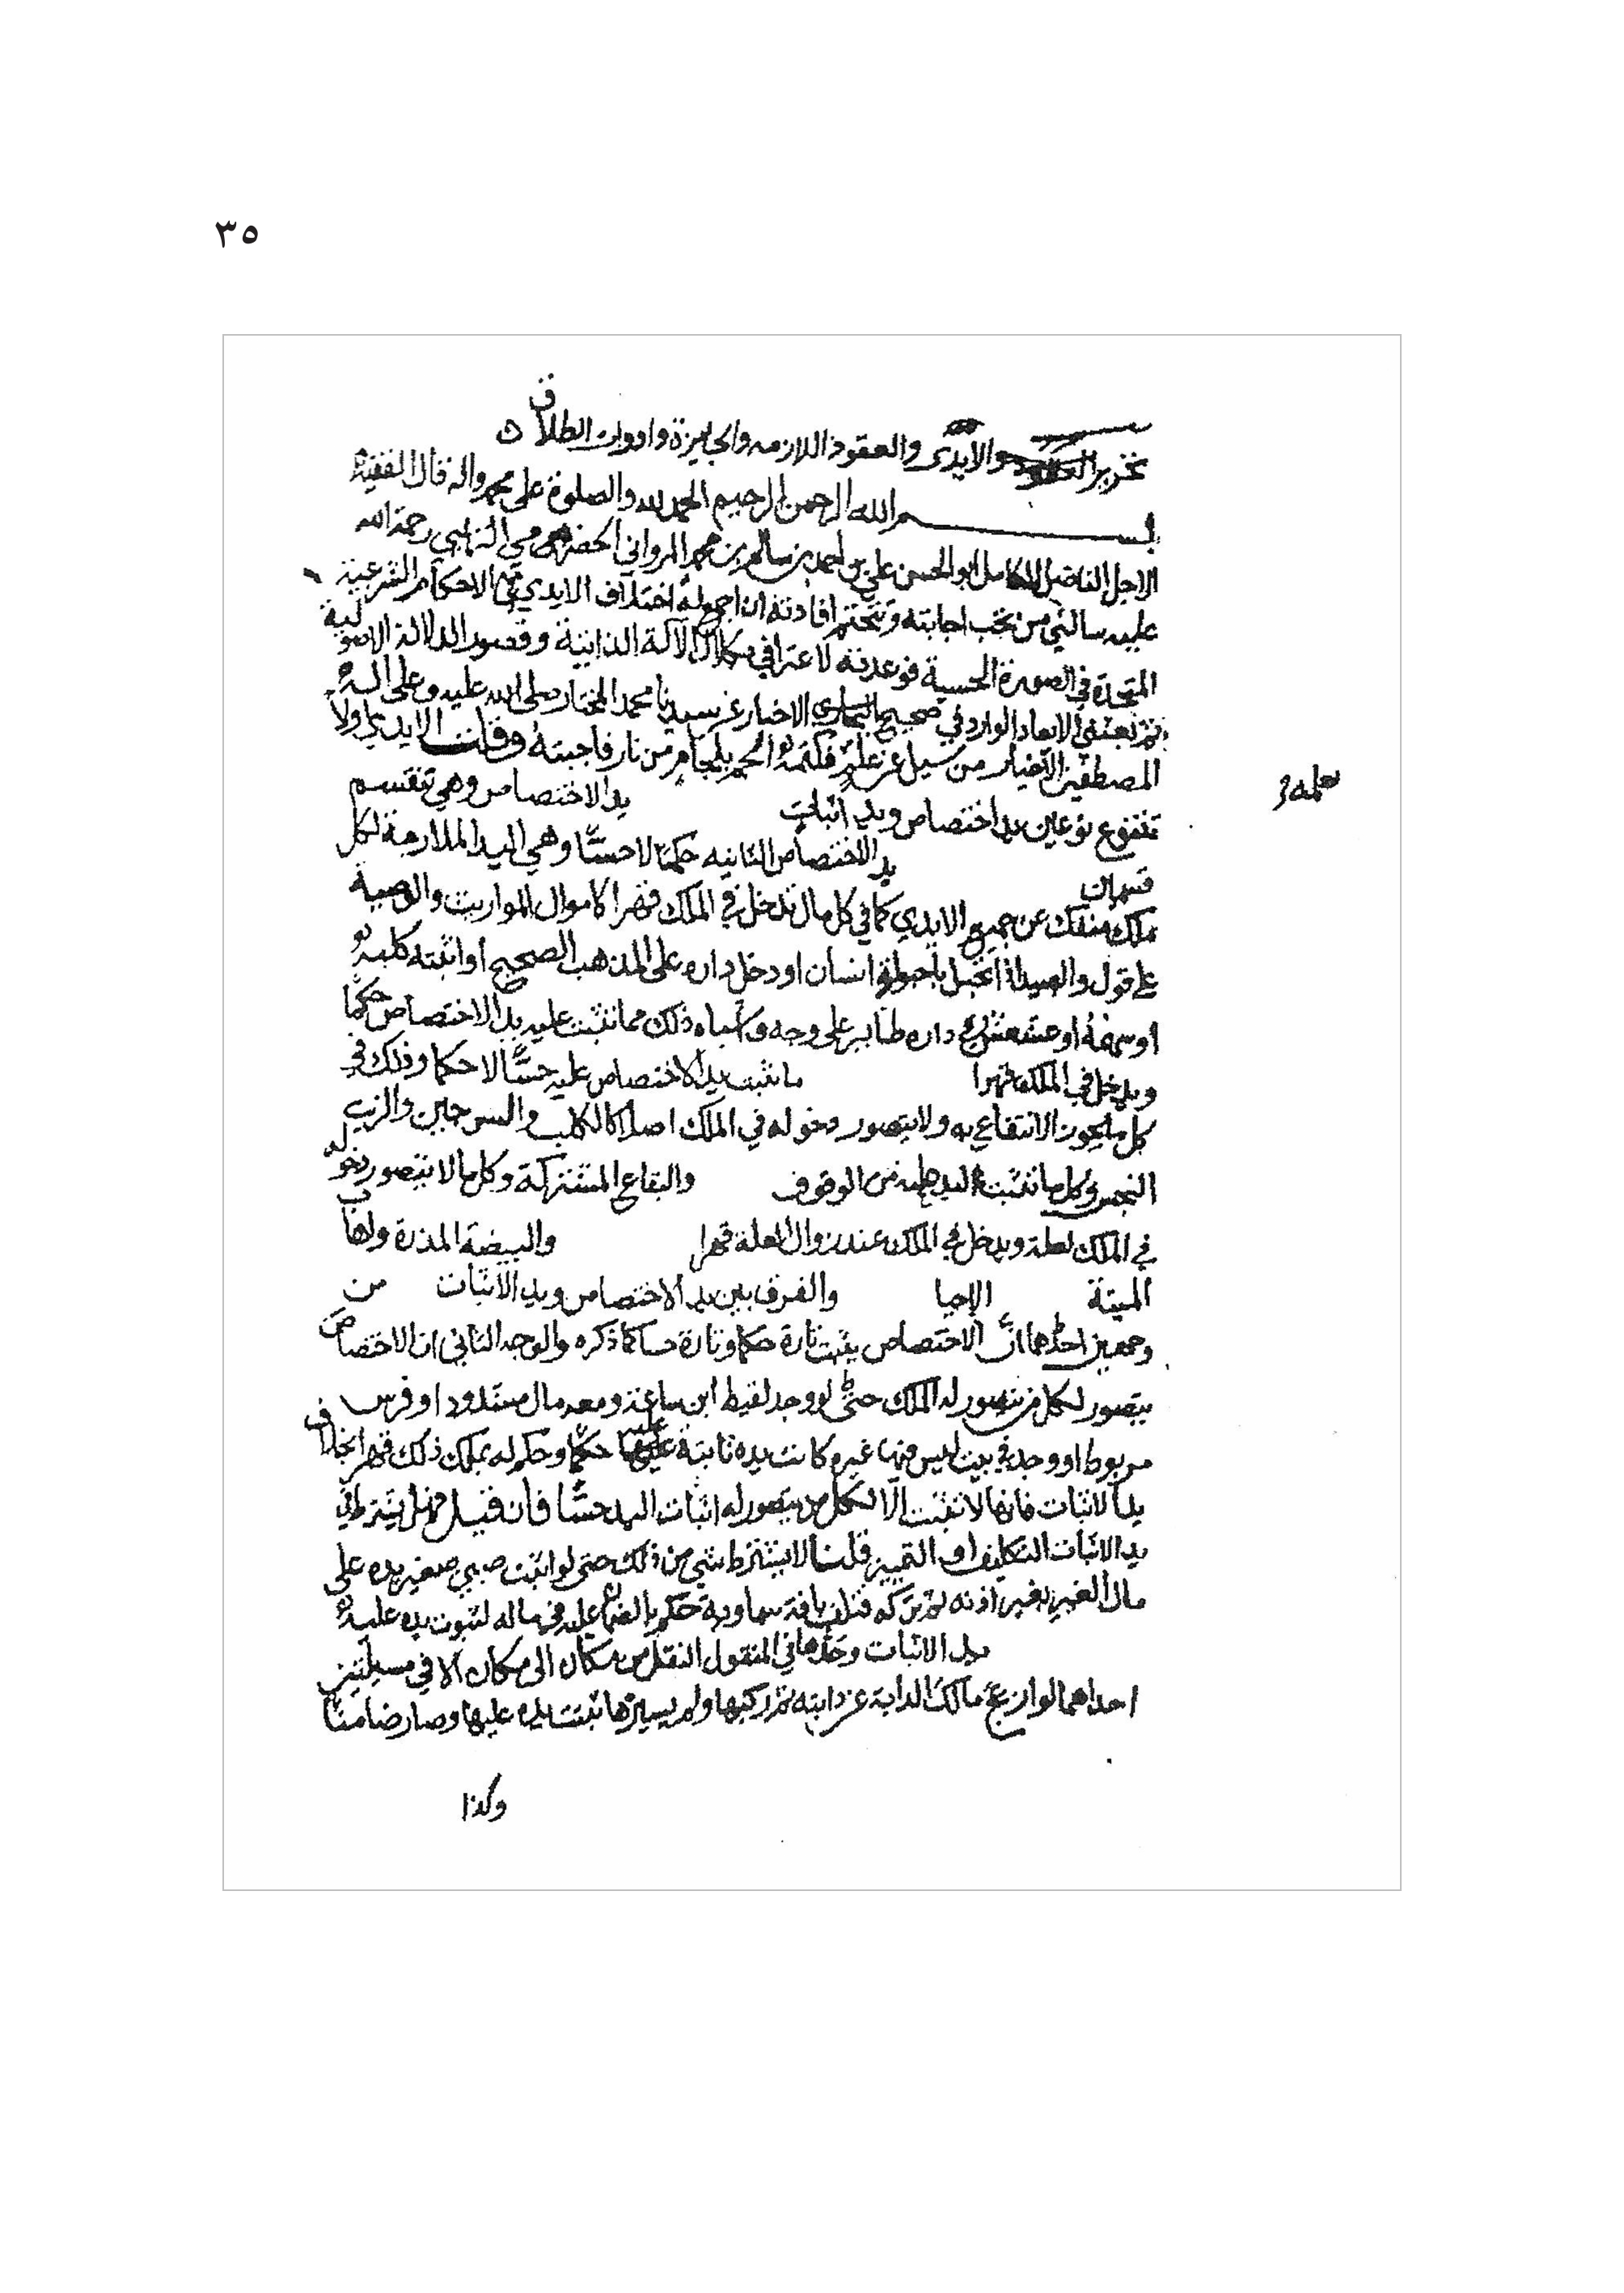 ٣٥
تحرير والأيدي والعقود اللازمه والجايزة وادوات الطلاق
بسم الله الرحمن الرحيم الحمد لله والصلوة على محمد واله قال الفقيه
الاجل الفاضل الكامل ابو الحسن علي بن احمد بن سالم بن محمد المرواني الحضرمي رحمة الله
عليه سالني من تجب اجابته وتتحتم افادته ان اجمع له اختلاف الايدي في الاحكام الشرعية
المتحدة في الصورة الحسية فوعدته لاعترافي بكلال الآلة الذاتية وقصور الدلالة الاصولية
ثم بعثني الابعاد الوارد في صحيح الاخبار عن سيدنا محمد المختار صلى الله عليه وعلى اله
المصطفين الاخيار من سيل عن علم فكتمه الجم بلجام من نار فاجبته وقلت الايدي اولا
يعلمه
تتنوع نوعين يد اختصاص ويد اثبات يد الاختصاص وهي تنقسم
قسمان يد الاختصاص الثانيه حكما لا حسا وهي اليد الملازمة لكل
ملك منفك عن جميع الايدي كما في كل مال تدخل في الملك قهرا كاموال المواريث والوصية
على قول والصيد اذا انحبل باحبولة انسان او دخل داره على المذهب الصحيح او اثبته كلبه
او سهمه او عشعش في داره طاير على وجه واشباه ذلك مما تثبت عليه يد الاختصاص حكما
ويدخل في الملك قهرا ما تثبت يد الاختصاص عليه حسا لا حكما وذلك في
كل ما يجوز الانتفاع به ولا يتصور دخوله في الملك اصلا كالكلب والسرجين والزيت
النجس وكل ما تثبت اليد عليه من الوقوف والبقاع المشتركة وكل ما لا يتصور دخوله
في الملك لعلة ويدخل في الملك عند زوال العلة قهرا والبيضة المذرة واهاب
الميتة الاحيا والفرق بين يد الاختصاص ويد الاثبات من
وجهين احدهما ان الاختصاص يثبت تارة حكما وتارة حسا كما ذكره والوجه الثاني ان الاختصاص
يتصور لكل من يتصور له الملك حتى لو وجد لقيط ابن ساعة ومعه مال مشدود او فرس
مربوط او وجد في بيت ليس فيها غيره كانت يده ثابتة عليه حكما وحكم له بملك ذلك قهرا بخلاف
يد الاثبات فانها لا تثبت الا لكل من يتصور له اثبات اليد حسا فان قيل فهل يشترط في
يد الاثبات التكليف او التمييز قلنا لا يشترط شي من ذلك حتى لو اثبت صبي صغير يده على
مال الغير بغير اذنه ثم تركه فتلف بافة سماوية حكم بالضمان عليه في ماله لثبوت يده عليه
يد الاثبات وحدها في المنقول النقل من مكان الى مكان الا في مسيلتين
احداهما لو ازعج مالك الدابة عن دابته ثم ركبها ولم يسيرها ثبتت يده عليها وصار ضامنا
وكذا